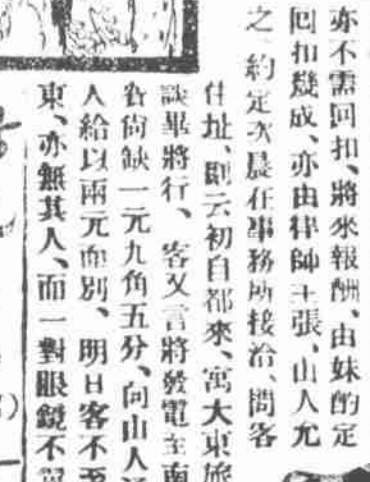 亦不需回扣、將來報酬、由妹酌定
回扣幾成、亦由律師主張、山人允
之、約定次晨在事務所接洽、問客
住址、則云初自都來、寓大東旅
談畢將行、客又言將發電至南
資尙缺一元九角五分、向山人
人給以兩元而別、明日客不至
東、亦無其人、而一對眼鏡不翼